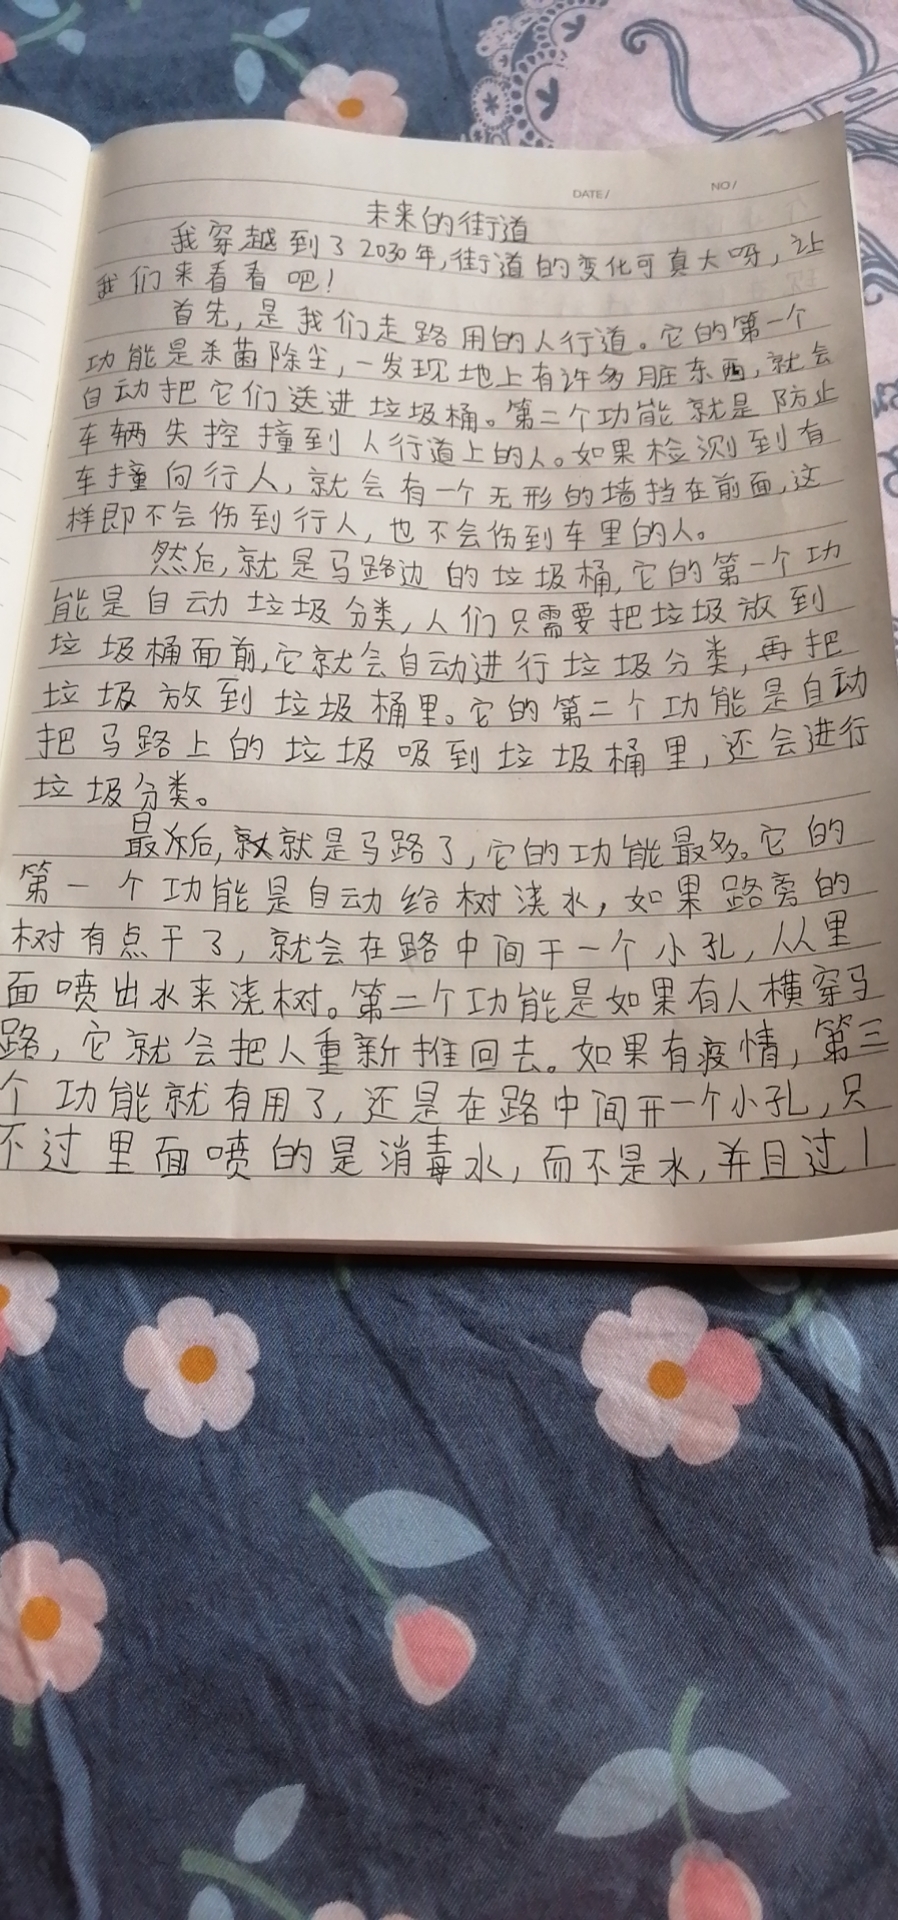 DATE/ NO/
未来的街道
我穿越到了2030年,街道的变化可真大呀,让
我们来看看吧!
首先,是我们走路用的人行道。它的第一个
功能是杀菌除尘,一发现地上有许多脏东西,就会
自动把它们送进垃圾桶。第二个功能就是防止
车辆失控撞到人行道上的人。如果检测到有
车撞向行人,就会有一个无形的墙挡在前面,这
样即不会伤到行人,也不会伤到车里的人。
然后,就是马路边的垃圾桶,它的第一个功
能是自动垃圾分类,人们只需要把垃圾放到
垃圾桶面前,它就会自动进行垃圾分类,再把
垃圾放到垃圾桶里。它的第二个功能是自动
把马路上的垃圾吸到垃圾桶里,还会进行
垃圾分类。
最后,就是马路了,它的功能最多。它的
第一个功能是自动给树浇水,如果路旁的
树有点干了,就会在路中间干一个小孔,从里
面喷出水来浇树。第二个功能是如果有人横穿马
路,它就会把人重新推回去。如果有疫情,第三
个功能就有用了,还是在路中间开一个小孔,只
不过里面喷的是消毒水,而不是水,并且过1